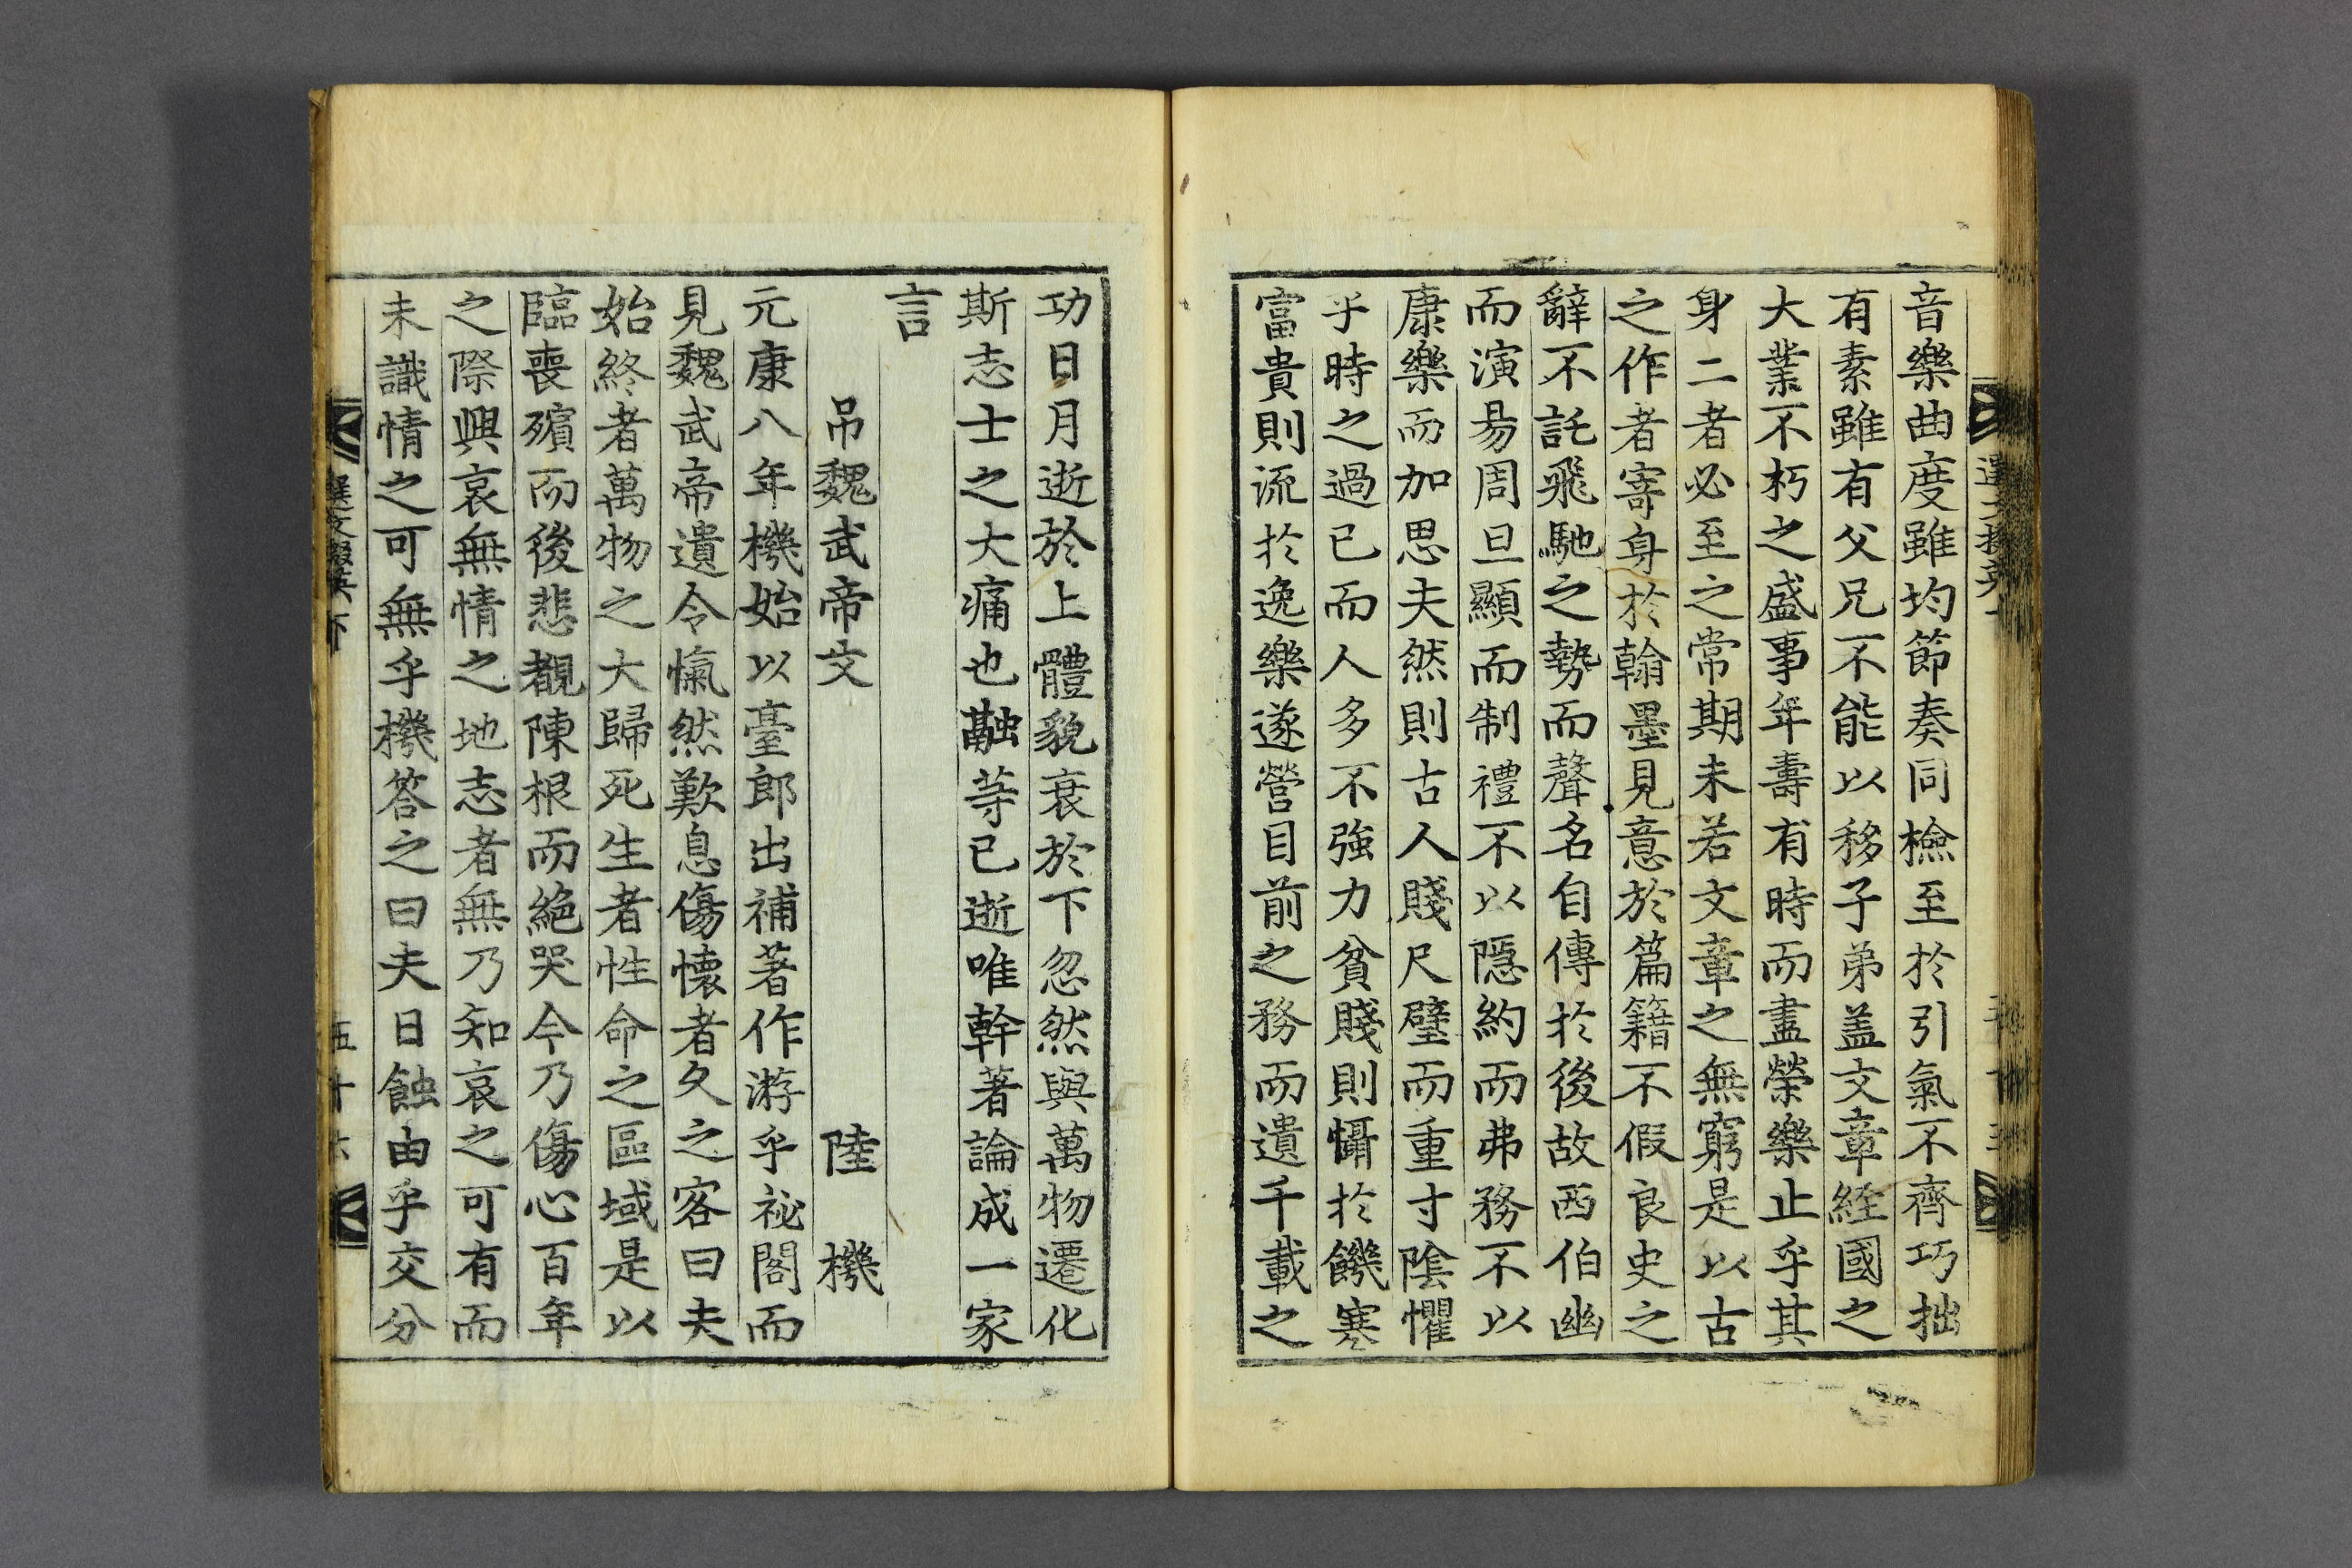 音樂曲度雖均節奏同檢至於引氣不齊巧拙
有素雖有父兄不能以移子弟盖文章經國之
大業不朽之盛事年壽有時而盡榮樂止乎其
身二者必至之常期未若文章之無窮是以古
之作者寄身於翰墨見意於篇籍不假良史之
辭不託飛馳之勢而聲名自傳於後故西伯幽
而演易周旦顯而制禮不以隱約而弗務不以
康樂而加思夫然則古人賤尺璧而重寸陰懼
乎時之過已而人多不強力貧賤則懾於饑寒
富貴則流於逸樂遂營目前之務而遺千載之
功日月逝於上體貌衰於下忽然與萬物遷化
斯志士之大痛也融等已逝唯幹著論成一家
言
吊魏武帝文 陸機
元康八年機始以臺郎出補著作游乎祕閣而
見魏武帝遺令愾然歎息傷懷者久之客曰夫
始終者萬物之大歸死生者性命之區域是以
臨喪殯而後悲覩陳根而絕哭今乃傷心百年
之際興哀無情之地志者無乃知哀之可有而
未識情之可無乎機答之曰夫日蝕由乎交分
選文掇英下 五十六